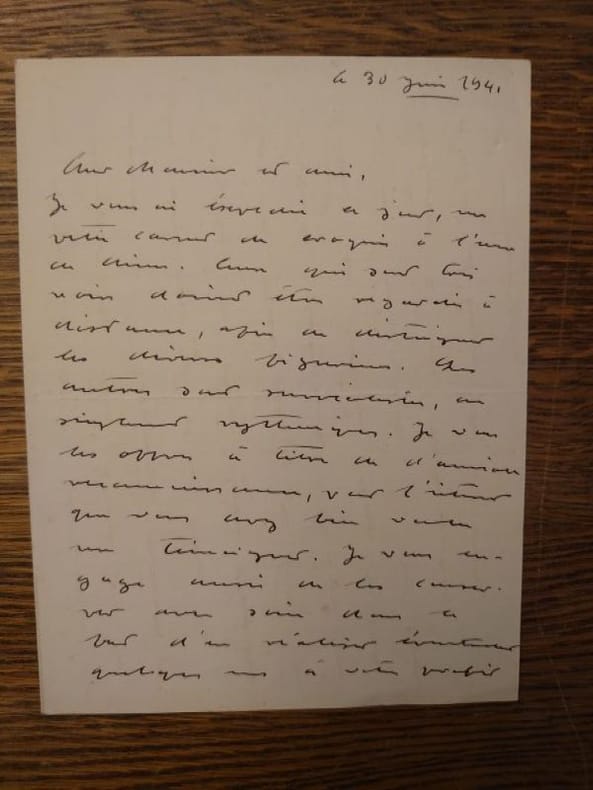 le 30 juin 1941
Cher Monsieur et ami,
Je vous ai expédié ce jour, un
petit carnet de croquis à l'encre
de Chine. Ceux qui sont très
noirs doivent être regardés à
distance, afin de distinguer
les diverses figurines. Les
autres sont surréalistes, ou
simplement rythmiques. Je vous
les offre à titre de d'amicale
reconnaissance, pour l'intérêt
que vous avez bien voulu
me témoigner. Je vous en-
gage aussi de les conser-
ver avec soin dans le
but d'en réaliser éventuellement
quelques uns à votre profit